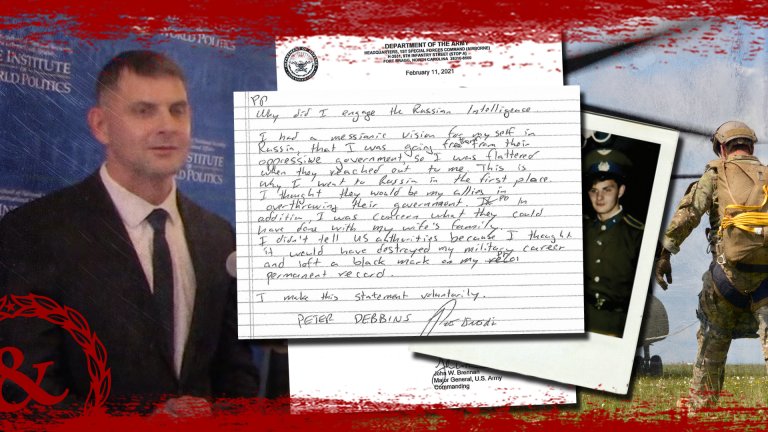 INSTITUTE
WORLD POLITICS
DEPARTMENT OF THE ARMY
HEADQUARTERS, 1ST SPECIAL FORCES COMMAND (AIRBORNE)
FORT BRAGG, NORTH CAROLINA
February 11, 2021
PD
Why did I engage the Russian Intelligence.
I had a messianic vision for myself in
Russia, that I was going free from their
oppressive government, so I was flattered
when they reached out to me. This is
why I went to Russia in the first place.
I thought they would be my allies in
overthrowing their government. PD In
addition, I was concern what they could
have done with my wife's family.
I didn't tell US authorities because I thought
it would have destroyed my military career
and left a black mark on my PD
permanent record.
I make this statement voluntarily.
PETER DEBBINS
John W. Brennan
Major General, U.S. Army
Commanding
&